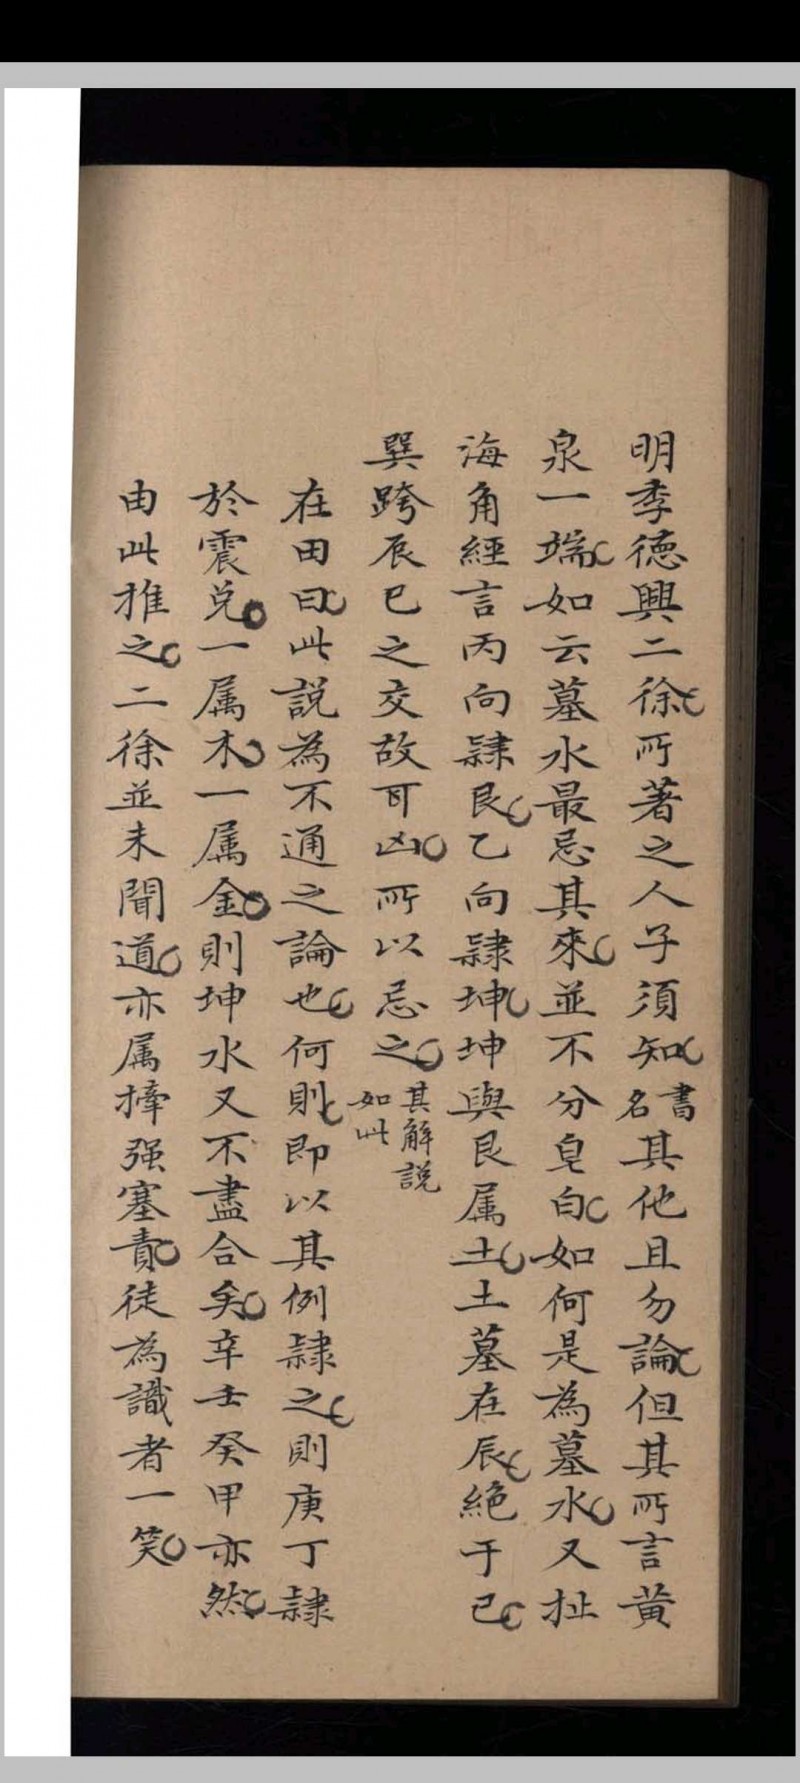 明季德興二徐所著之人子須知書名其他且勿論但其所言黃
泉一端如云墓水最忌其來並不分皂白如何是為墓水又扯
海角經言丙向隸艮乙向隸坤坤與艮属土土墓在辰絕于巳
巽跨辰巳之交故可凶所以忌之其解説如此
在田曰此説為不通之論也何則即以其例隸之則庚丁隸
於震兌一属木一属金則坤水又不盡合矣辛壬癸甲亦然
由此推之二徐並未聞道亦属撁强塞責徒為識者一笑